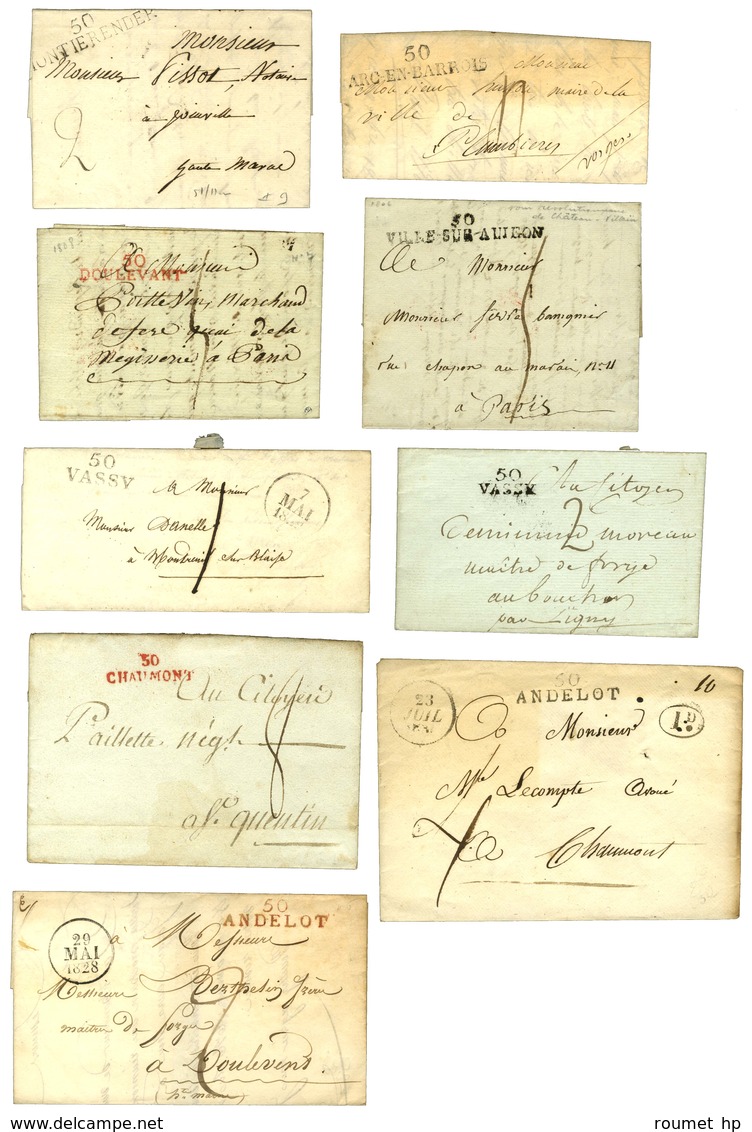 50
MONTIERENDER
Monsieur
Monsieur Vissot, Notaire
à Joinville
haute Marne
2
9
50
ARC-EN-BARROIS
Monsieur
Monsieur maire de la
ville de
Plombieres
Vosges
1808
50
DOULEVANT
A Monsieur
Marchand
de fere quai de la
Megisserie à Paris
50
VILLE-SUR-AUJEON
de Château-Villain
A Monsieur
Monsieur
rue chapon au marais, N° 11
à Paris
50
VASSY
7
MAI
A Monsieur
Monsieur Danelle
à Montreuil sur Blaise
50
VASSY
Au Citoyen
2 moreau
maître de forge
au bouchon
par Ligny
50
CHAUMONT
Au Citoyen
Paillette négt.
8
a St. quentin
23
JUIL
50
ANDELOT
10
1.D
A Monsieur
Me Lecompte Avoué
A Chaumont
29
MAI
1828
50
ANDELOT
à Messieurs
Messieurs frères
maitres de forges
à Doulevent
(hte marne)
© roumet.fr